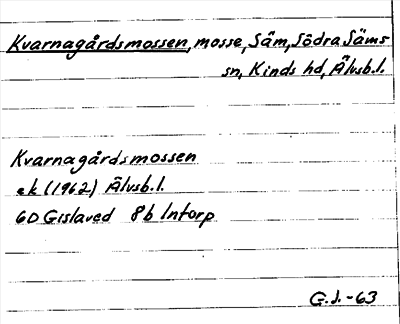 Kvarnagårdsmossen, mosse, Säm, Södra Säms
sn, Kinds hd, Älvsb.l.
Kvarnagårdsmossen
ek (1962) Älvsb.l.
6D Gislaved 8b Intorp
G.J.-63